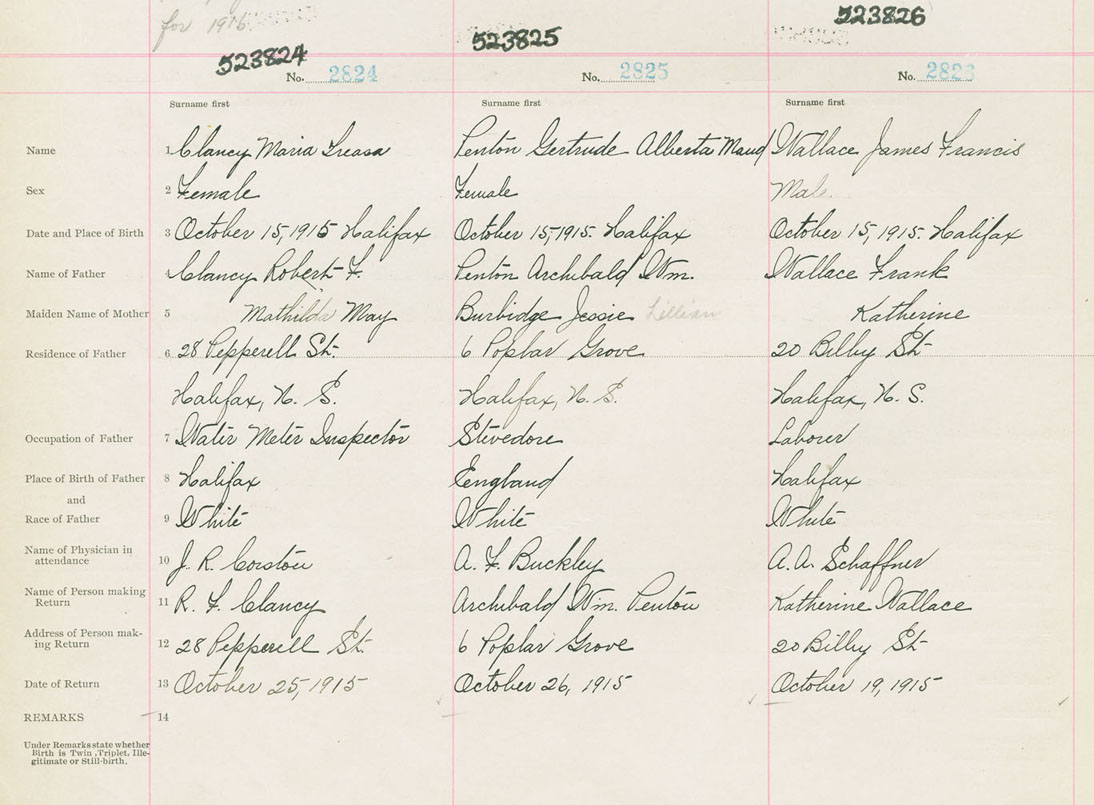 for 1916.
523824 523825 523826
No. 2824 No. 2825 No. 2826
Surname first Surname first Surname first
Name 1 Clancy Maria Treasa Penton Gertrude Alberta Maud Wallace James Francis
Sex 2 Female Female Male
Date and Place of Birth 3 October 15, 1915 Halifax October 15, 1915. Halifax October 15, 1915. Halifax
Name of Father 4 Clancy Robert F. Penton Archibald Wm. Wallace Frank
Maiden Name of Mother 5 Mathilda May Burbidge Jessie Lillian Katherine
Residence of Father 6 28 Pepperell St. 6 Poplar Grove 20 Bilby St
Halifax, N. S. Halifax, N. S. Halifax, N. S.
Occupation of Father 7 Water Meter Inspector Stevedore Laborer
Place of Birth of Father 8 Halifax England Halifax
and
Race of Father 9 White White White
Name of Physician in
attendance 10 J. R. Corston A. F. Buckley A. A. Schaffner
Name of Person making
Return 11 R. F. Clancy Archibald Wm. Penton Katherine Wallace
Address of Person mak-
ing Return 12 28 Pepperell St. 6 Poplar Grove 20 Bilby St
Date of Return 13 October 25, 1915 October 26, 1915 October 19, 1915
REMARKS 14
Under Remarks state whether
Birth is Twin, Triplet, Ille-
gitimate or Still-birth.